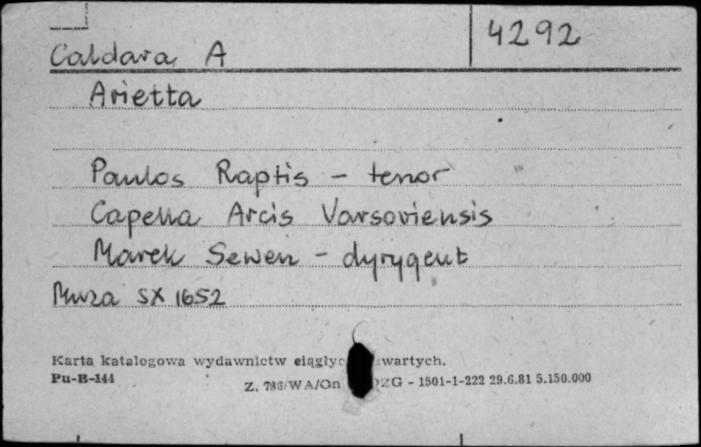 4292
Caldara A
Arietta
Paulos Raptis - tenor
Capella Arcis Varsoviensis
Marek Sewen - dyrygent
Muza SX 1652
Karta katalogowa wydawnictw
Pu-B-144
Z. 786/WA/On ZG - 1501-1-222 29.6.81 5.150.000